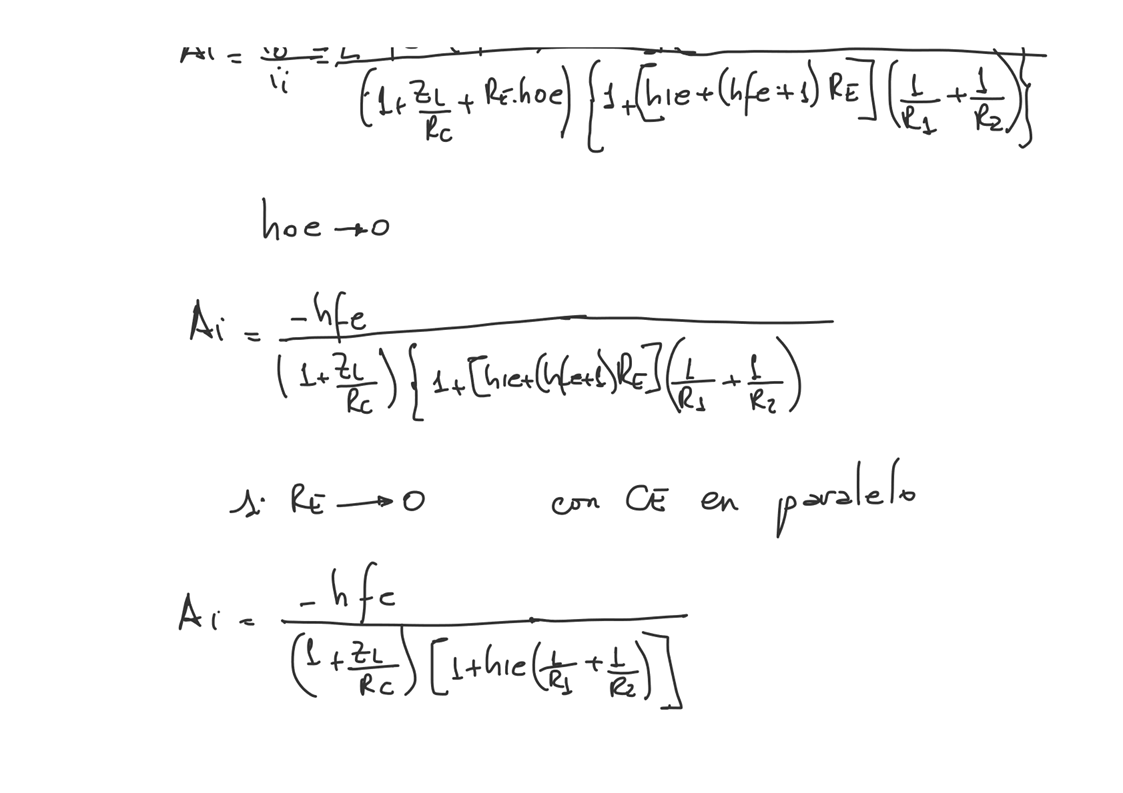 Ai = io/ii =
(1 + ZL/RC + RE.hoe) {1 + [hie + (hfe + 1) RE] (1/R1 + 1/R2)}
hoe → 0
Ai = -hfe / (1 + ZL/RC) {1 + [hie + (hfe + 1) RE] (1/R1 + 1/R2)
si RE → 0 con CE en paralelo
Ai = -hfe / (1 + ZL/RC) [1 + hie (1/R1 + 1/R2)]